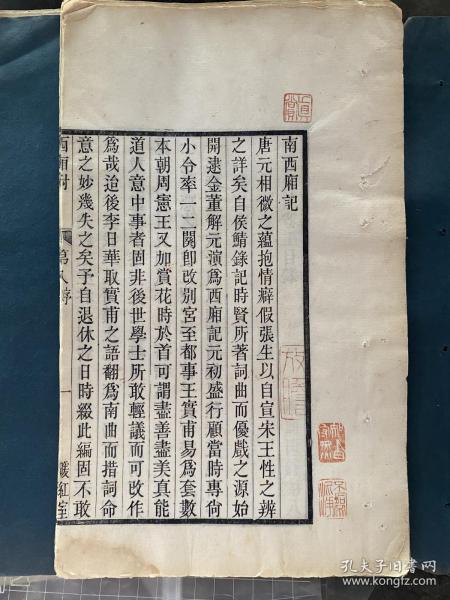 南西廂記
唐元相微之蘊抱情癖假張生以自宣宋王性之辨
之詳矣自侯鯖錄記時賢所著詞曲而優戲之源始
開逮金董解元演爲西廂記元初盛行顧當時專尙
小令率一二闋卽改別宮至都事王實甫易爲套數
本朝周憲王又加賞花時於首可謂盡善盡美真能
道人意中事者固非後世學士所敢輕議而可改作
爲哉迨後李日華取實甫之語翻爲南曲而措詞命
意之妙幾失之矣予自退休之日時綴此編固不敢
西廂附
第八序
一
暖紅室
孔夫子旧书网
www.kongfz.com